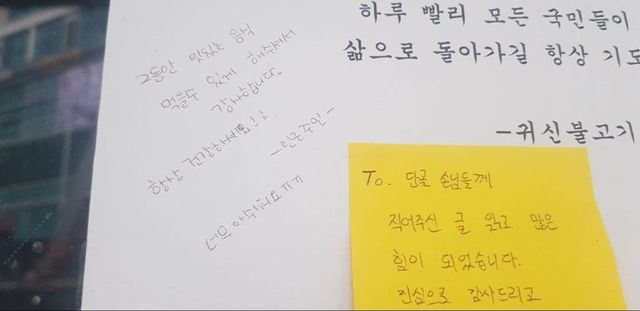 하루 빨리 모든 국민들이
삶으로 돌아가길 항상 기도
-귀신불고기
그동안 맛있는 음식
먹을수 있게 해주셔서
감사합니다.
항상 건강하세요!!
-인근주민-
너무 아쉬워요ㅠㅠ
To. 단골 손님들께
적어주신 글 읽고 많은
힘이 되었습니다.
진심으로 감사드리고